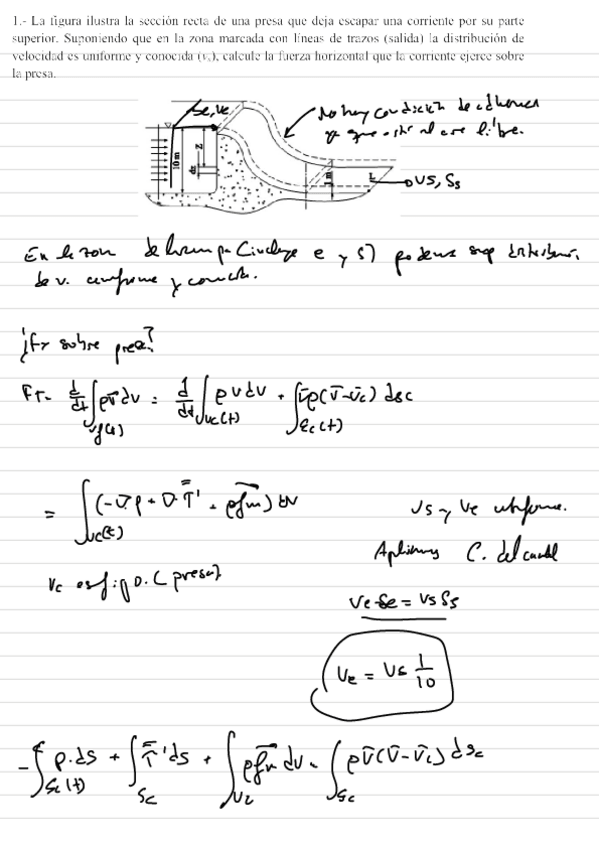 1.- La figura ilustra la sección recta de una presa que deja escapar una corriente por su parte
superior. Suponiendo que en la zona marcada con líneas de trazos (salida) la distribución de
velocidad es uniforme y conocida (vₛ), calcule la fuerza horizontal que la corriente ejerce sobre
la presa.
Se, Ve
No hay condición de
ya que al aire libre.
10 m
Z
dz
1 m
VS, Ss
En la zona de (incluye e y S) podemos sup
de v. uniforme y conocida.
¿Fx sobre presa?
FT = d/dt ∫ρv̄dv = d/dt ∫ρvdv + ∫v̄ρ(v̄-v̄c) dsc
Vf(t) Vc(t) Sc(t)
= ∫(-∇p + ∇·τ̄' + ρf̄m) dv
Vc(t)
Vs y Ve uniforme.
Aplicamos C. del caudal
Vc es fijo. (presa)
Ve·Se = Vs Ss
Ve = Vs 1/10
-∫p·ds + ∫τ̄'ds + ∫ρf̄m dv = ∫ρv̄(v̄-v̄c) dsc
Sc(t) Sc Vc Sc